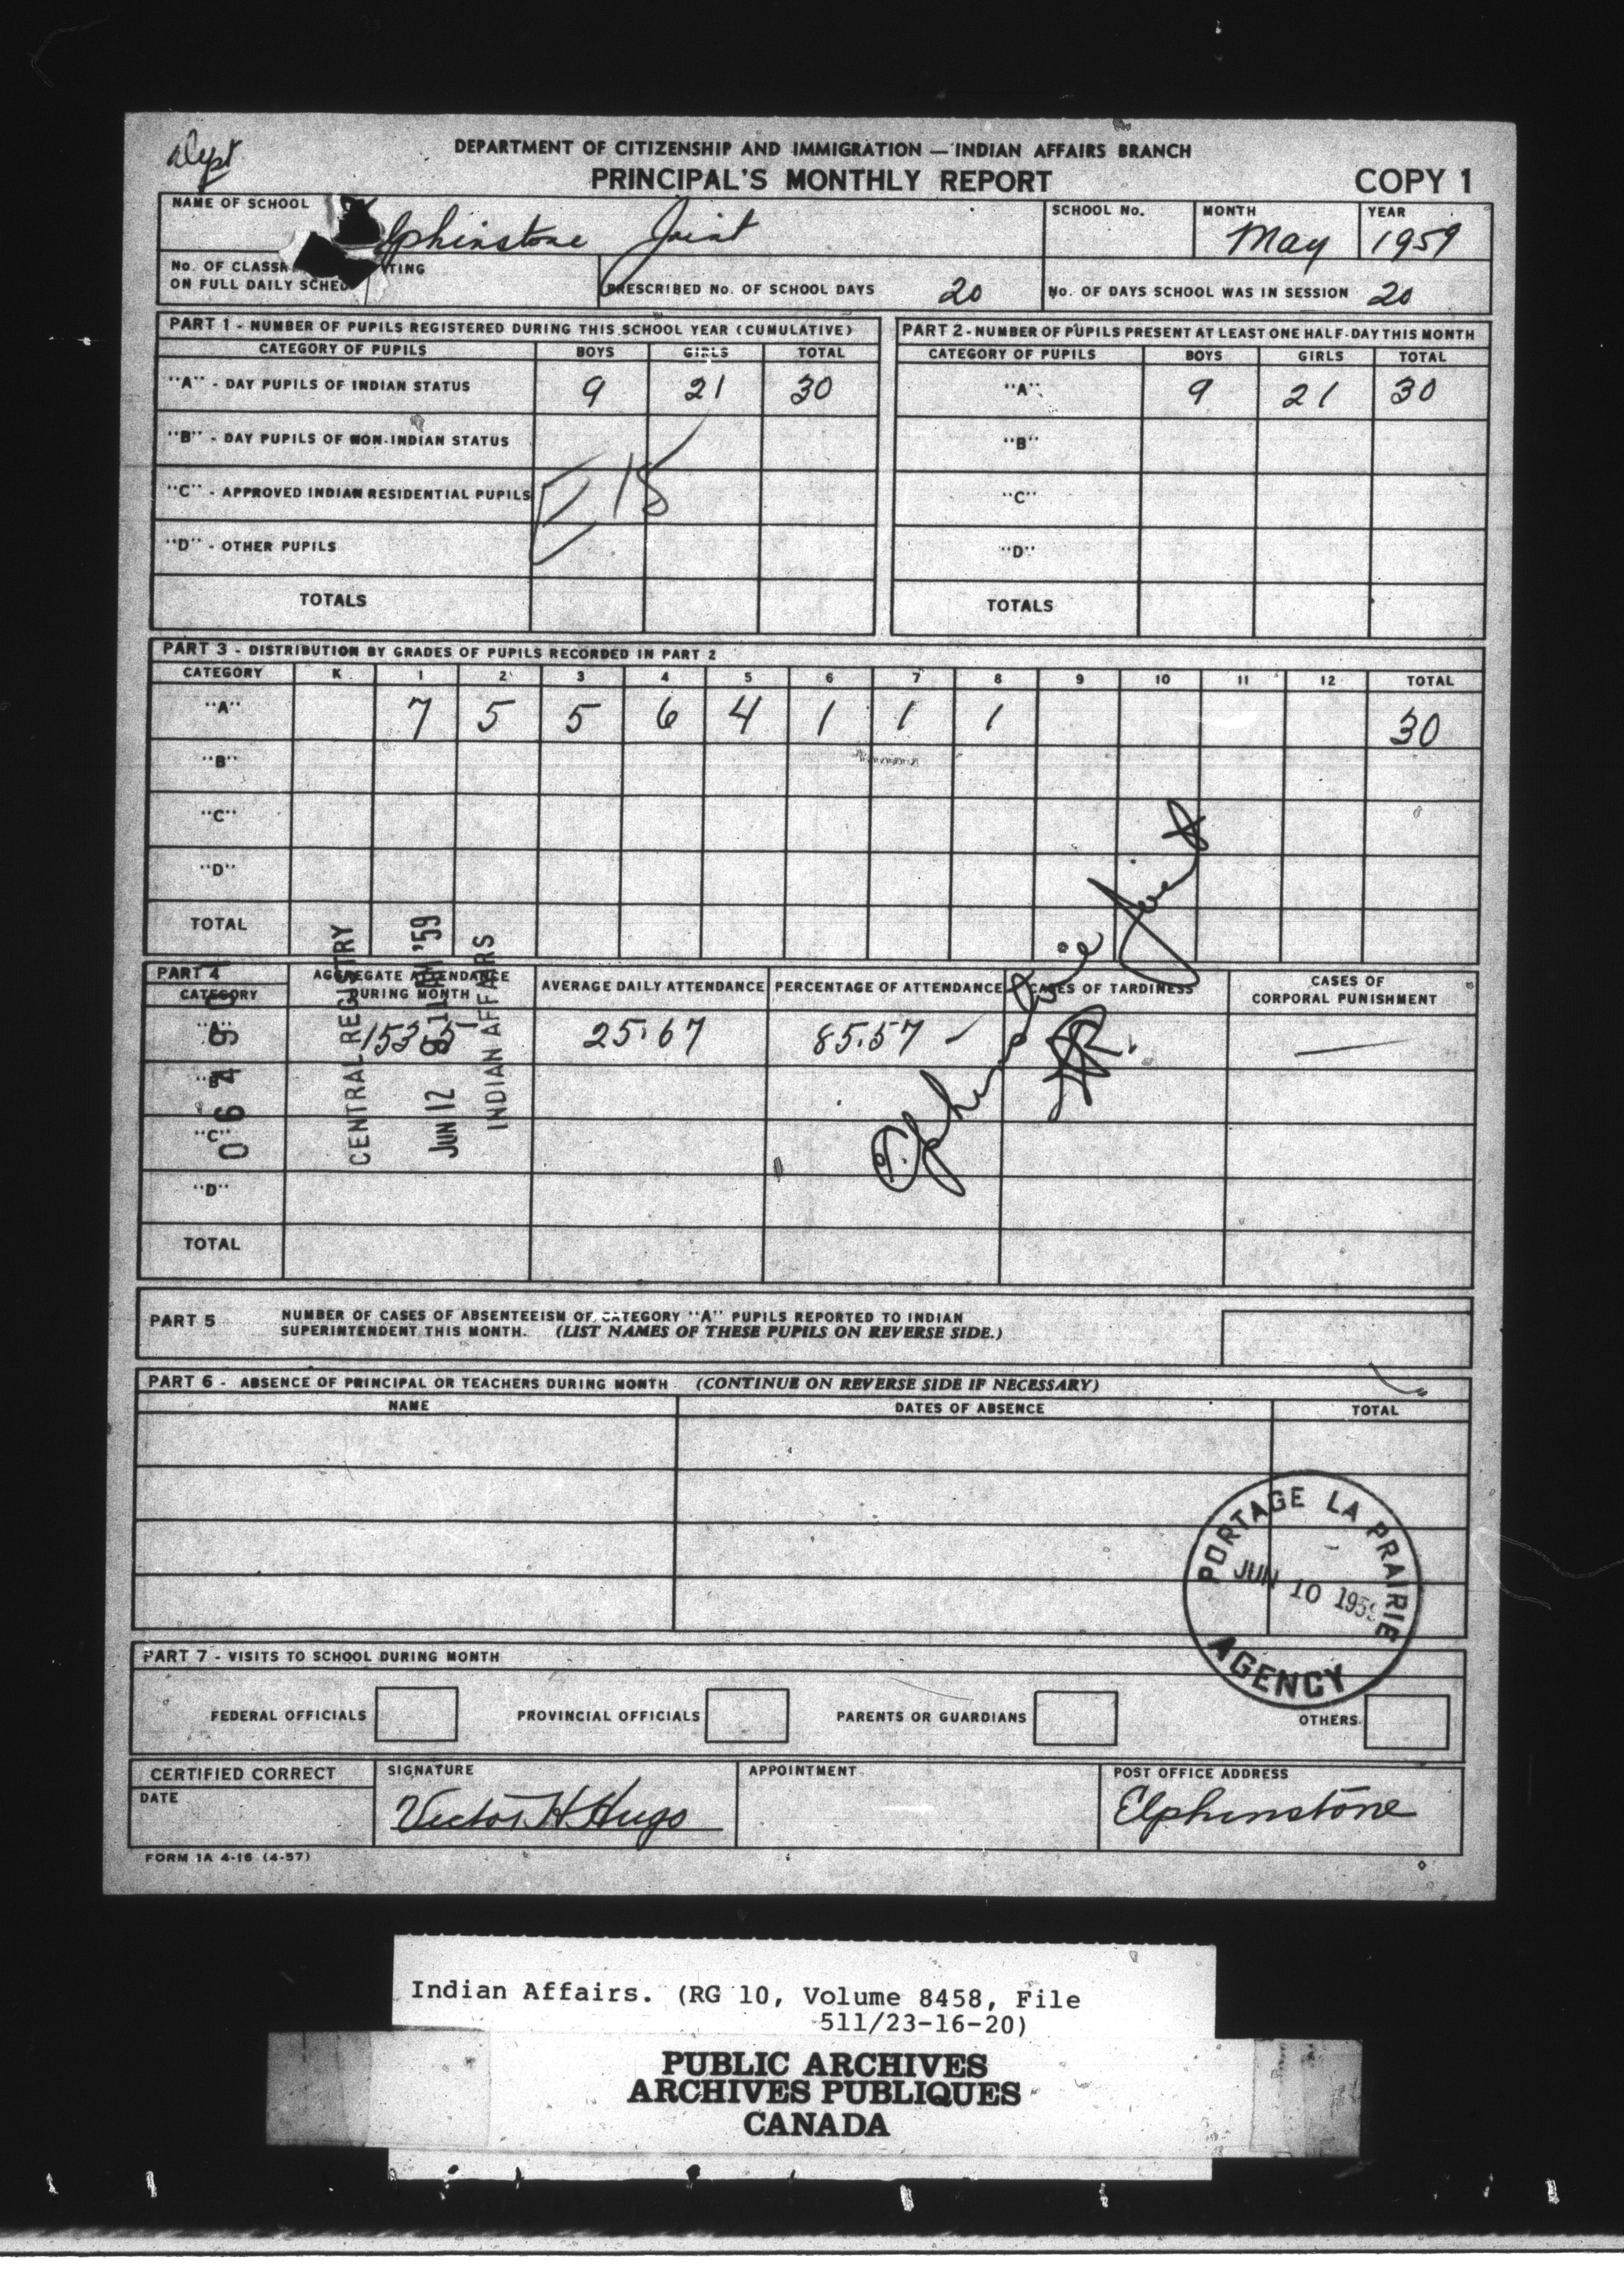 DEPARTMENT OF CITIZENSHIP AND IMMIGRATION — INDIAN AFFAIRS BRANCH
PRINCIPAL'S MONTHLY REPORT COPY 1
NAME OF SCHOOL lphinstone Joint SCHOOL No. MONTH May YEAR 1959
No. OF CLASSR TING
ON FULL DAILY SCHED PRESCRIBED No. OF SCHOOL DAYS 20 No. OF DAYS SCHOOL WAS IN SESSION 20
PART 1 - NUMBER OF PUPILS REGISTERED DURING THIS SCHOOL YEAR (CUMULATIVE)
CATEGORY OF PUPILS BOYS GIRLS TOTAL
"A" - DAY PUPILS OF INDIAN STATUS 9 21 30
"B" - DAY PUPILS OF NON-INDIAN STATUS
"C" - APPROVED INDIAN RESIDENTIAL PUPILS
E 18
"D" - OTHER PUPILS
TOTALS
PART 2 - NUMBER OF PUPILS PRESENT AT LEAST ONE HALF-DAY THIS MONTH
CATEGORY OF PUPILS BOYS GIRLS TOTAL
"A" 9 21 30
"B"
"C"
"D"
TOTALS
PART 3 - DISTRIBUTION BY GRADES OF PUPILS RECORDED IN PART 2
CATEGORY K 1 2 3 4 5 6 7 8 9 10 11 12 TOTAL
"A" 7 5 5 6 4 1 1 1 30
"B"
"C"
"D"
TOTAL
PART 4
CATEGORY AGGREGATE ATTENDANCE DURING MONTH AVERAGE DAILY ATTENDANCE PERCENTAGE OF ATTENDANCE CASES OF TARDINESS CASES OF CORPORAL PUNISHMENT
"A" 25.67 85.57
"B"
"C"
"D"
TOTAL
CENTRAL REGISTRY
JUN 12 8 11 AM '59
INDIAN AFFAIRS
Elphinstone Joint
PART 5 NUMBER OF CASES OF ABSENTEEISM OF CATEGORY "A" PUPILS REPORTED TO INDIAN
SUPERINTENDENT THIS MONTH. (LIST NAMES OF THESE PUPILS ON REVERSE SIDE.)
PART 6 - ABSENCE OF PRINCIPAL OR TEACHERS DURING MONTH (CONTINUE ON REVERSE SIDE IF NECESSARY)
NAME DATES OF ABSENCE TOTAL
PORTAGE LA PRAIRIE
JUN 10 1959
AGENCY
PART 7 - VISITS TO SCHOOL DURING MONTH
FEDERAL OFFICIALS PROVINCIAL OFFICIALS PARENTS OR GUARDIANS OTHERS
CERTIFIED CORRECT SIGNATURE APPOINTMENT POST OFFICE ADDRESS
DATE Victor H Hugo Elphinstone
FORM 1A 4-16 (4-57)
Indian Affairs. (RG 10, Volume 8458, File
511/23-16-20)
PUBLIC ARCHIVES
ARCHIVES PUBLIQUES
CANADA